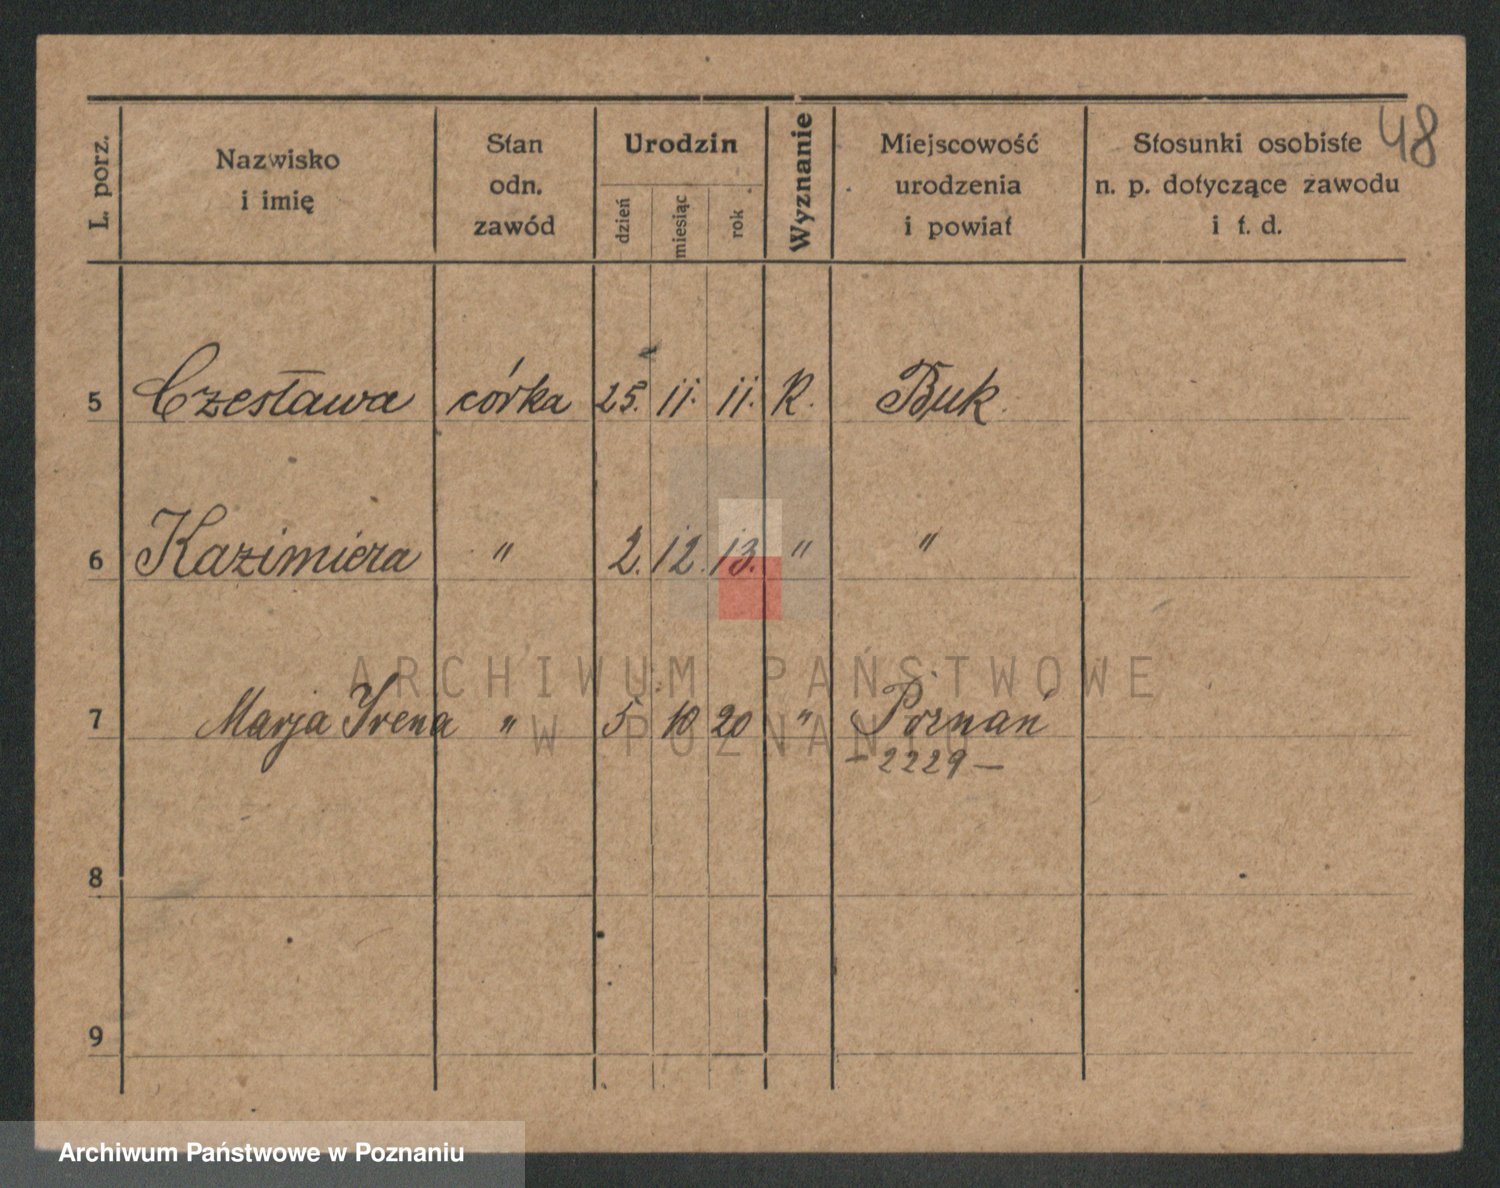 48
L. porz. Nazwisko i imię Stan odn. zawód Urodzin dzień miesiąc rok Wyznanie Miejscowość urodzenia i powiat Stosunki osobiste n. p. dotyczące zawodu i t. d.
5 Czesława córka 25. 11. 11. R. Buk.
6 Kazimiera " 2. 12. 13. " "
ARCHIWUM PAŃSTWOWE
7 Marja Irena " 5 10 20 " Poznań
W POZNANIU
- 2229 -
8
9
Archiwum Państwowe w Poznaniu